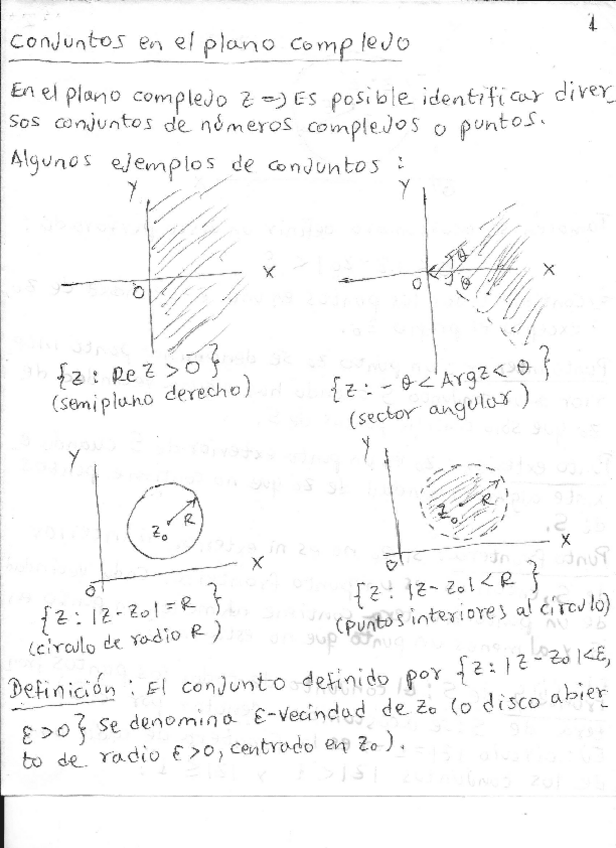 1
Conjuntos en el plano complejo
En el plano complejo z => Es posible identificar diver
sos conjuntos de números complejos o puntos.
Algunos ejemplos de conjuntos :
Y Y
θ
0 X 0 θ X
{z : Re z > 0} {z : -θ < Arg z < θ}
(semiplano derecho) (sector angular)
Y Y
z₀ R z₀ R
0 X 0 X
{z : |z - z₀| = R} {z : |z - z₀| < R}
(círculo de radio R) (puntos interiores al círculo)
Definición : El conjunto definido por {z : |z - z₀| < ε,
ε > 0} se denomina ε-vecindad de z₀ (o disco abier
to de radio ε > 0, centrado en z₀).